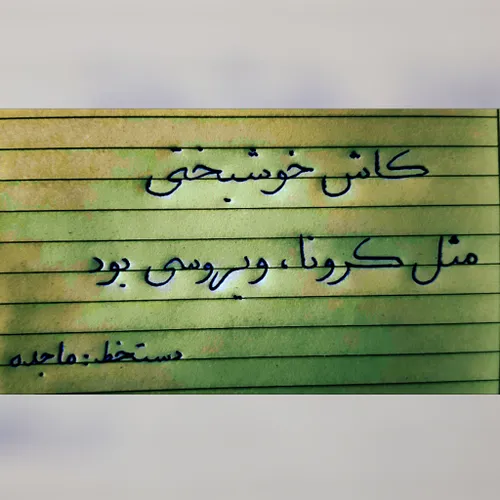 کاش خوشبختی
مثل کرونا، ویروسی بود
دستخط: ماجده